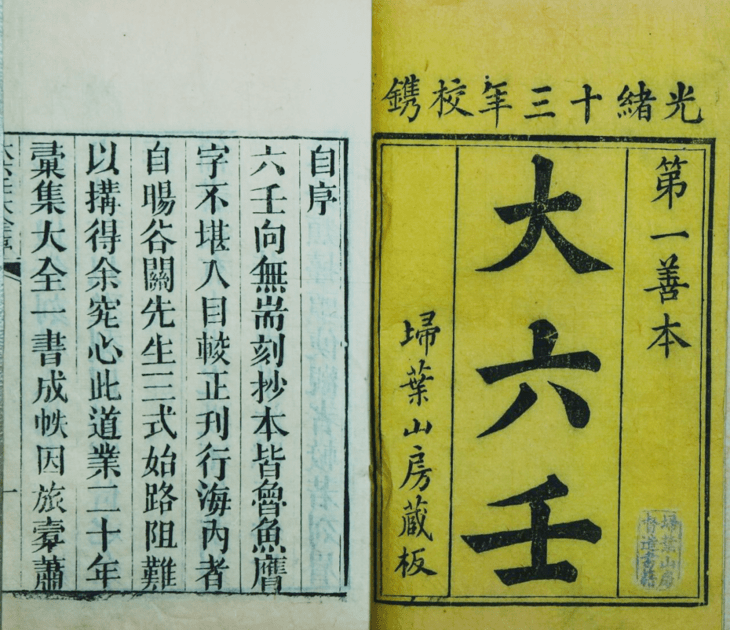 光緒十三年校鐫
第一善本
大六壬
埽葉山房藏板
埽葉山房
督造書籍
自序
六壬向無耑刻抄本皆魯魚膺
字不堪入目較正刊行海內者
自暘谷關先生三式始路阻難
以搆得余究心此道業二十年
彚集大全一書成帙因旅橐蕭
一